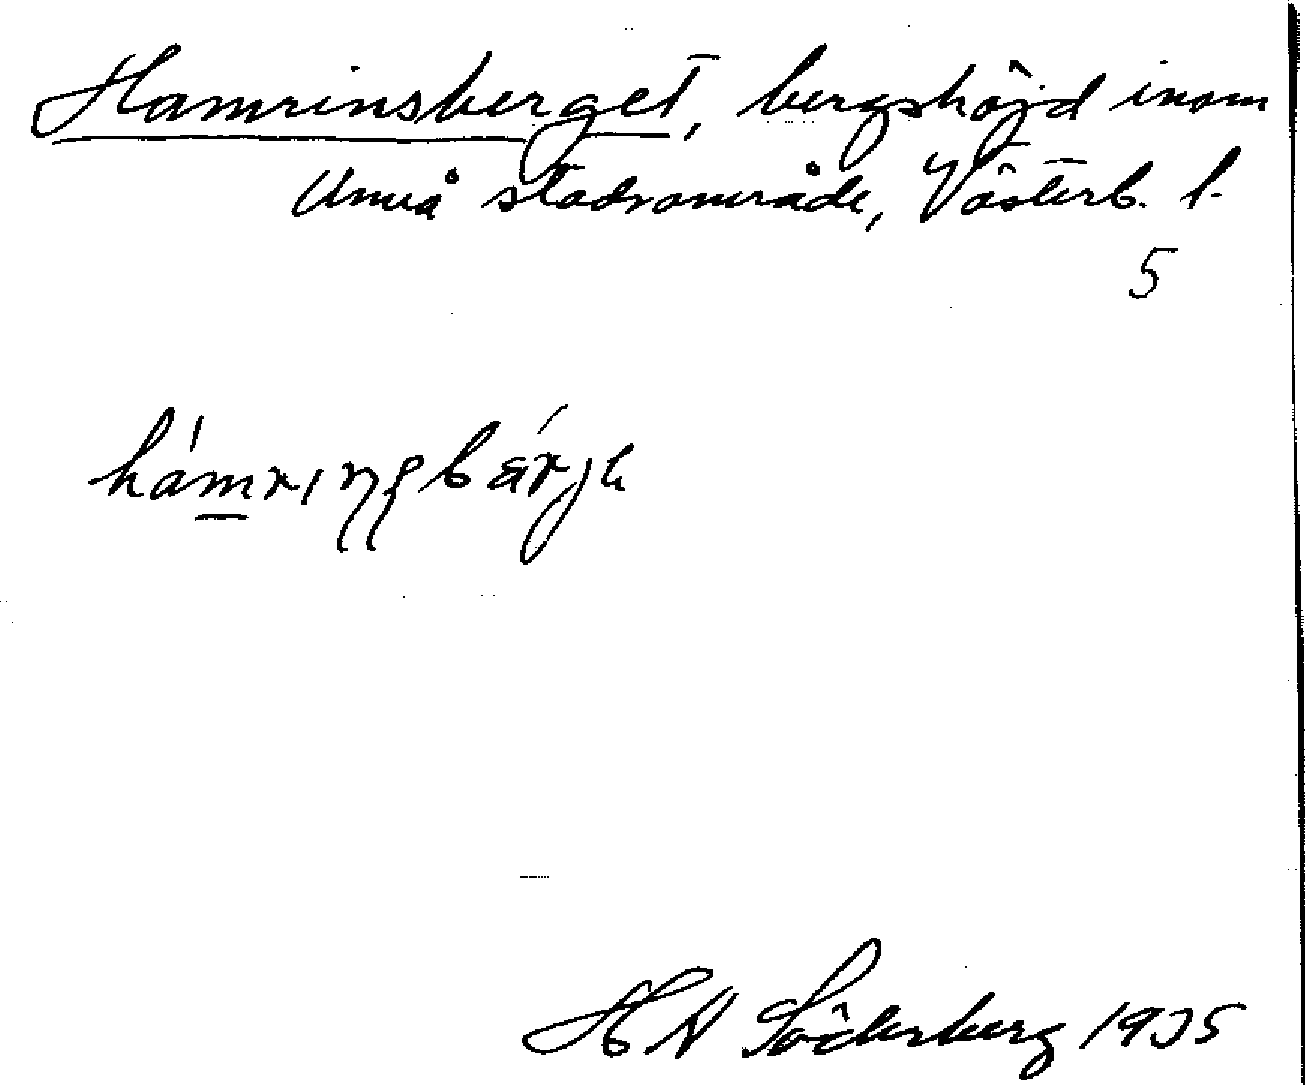 Hamrinsberget, bergshöjd inom
Umeå stadsområde, Västerb. l.
5
HN Söderberg 1935